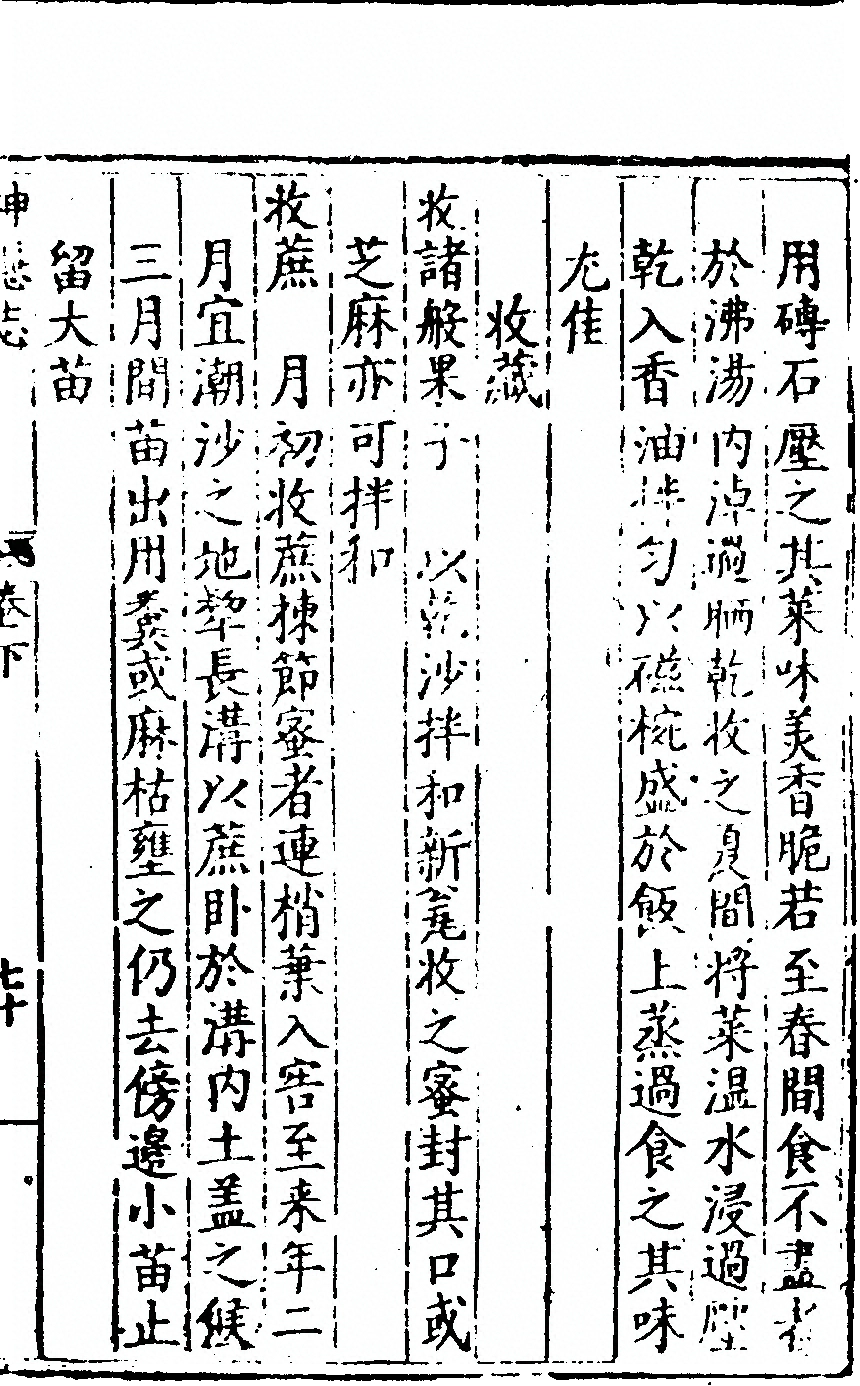 用磚石壓之其菜味美香脆若至春間食不盡者
於沸湯内淖過晒乾收之夏間將菜温水浸過壓
乾入香油拌匀以磁椀盛於飯上蒸過食之其味
尤佳
收藏
收諸般果子 以乾沙拌和新瓮收之蜜封其口或
芝麻亦可拌和
收蔗 月初收蔗揀節蜜者連梢葉入窖至来年二
月宜潮沙之地犂長溝以蔗卧於溝内土盖之候
三月間苗出用糞或麻枯壅之仍去傍邊小苗止
留大苗
神隱志
卷下
七十